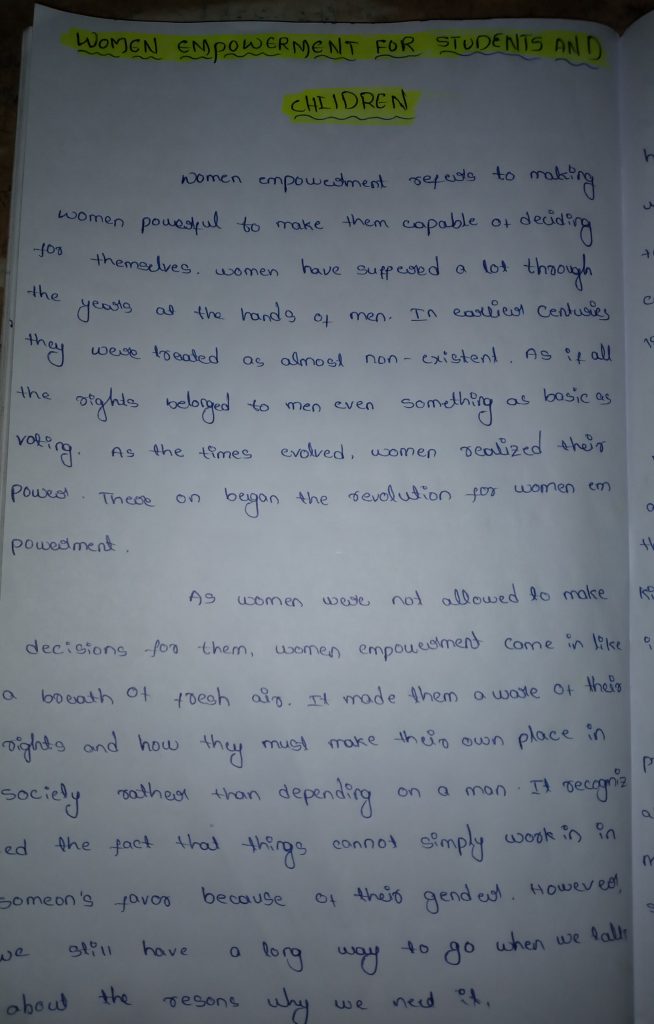 WOMEN EMPOWERMENT FOR STUDENTS AND
CHILDREN
Women empowerment refers to making
women powerful to make them capable of deciding
for themselves. women have suffered a lot through
the years at the hands of men. In earlier centuries
they were treated as almost non-existent. As if all
the rights belonged to men even something as basic as
voting. As the times evolved, women realized their
power. There on began the revolution for women em
powerment.
As women were not allowed to make
decisions for them, women empowerment came in like
a breath of fresh air. It made them aware of their
rights and how they must make their own place in
society rather than depending on a man. It recogniz
ed the fact that things cannot simply work in in
someon's favor because of their gender. However,
we still have a long way to go when we talk
about the resons why we need it.